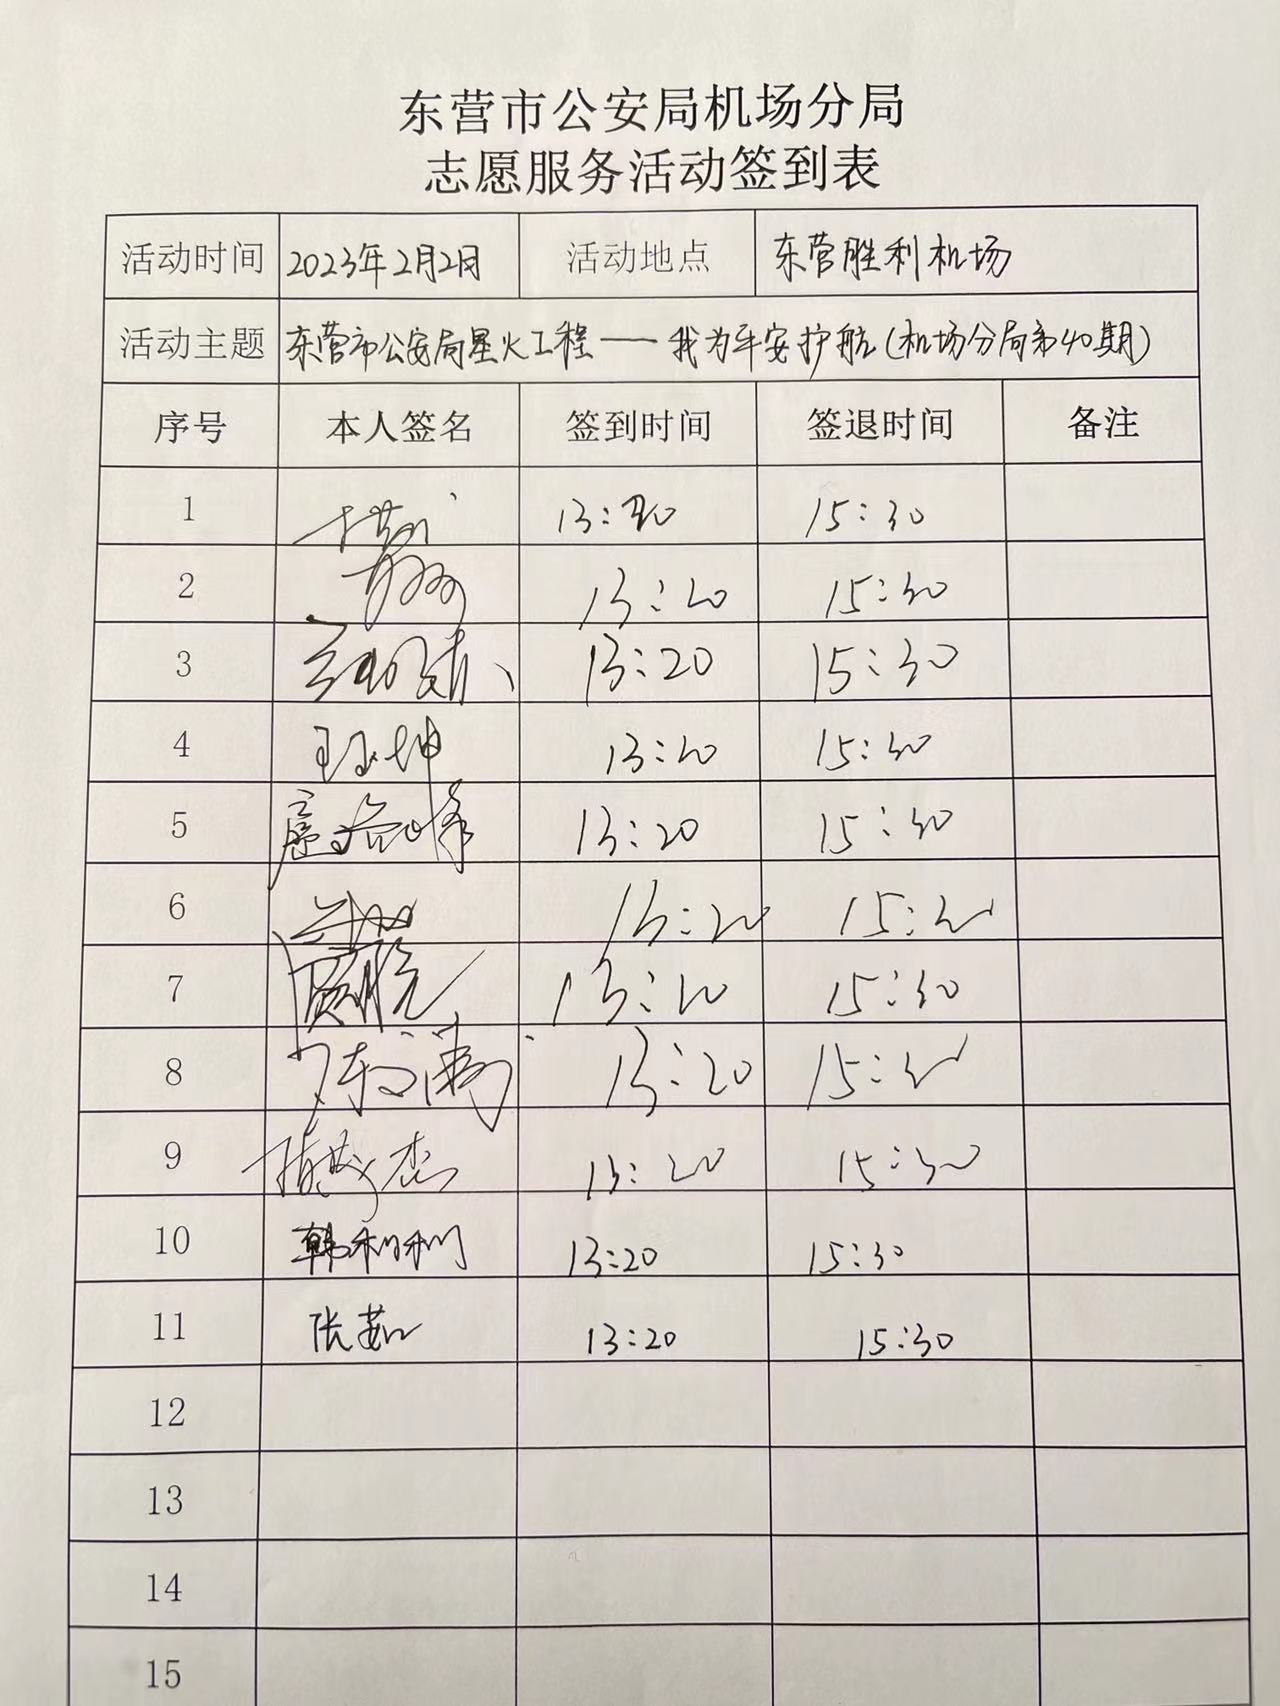 东营市公安局机场分局
志愿服务活动签到表
活动时间 2023年2月2日 活动地点 东营胜利机场
活动主题 东营市公安局星火工程——我为平安护航(机场分局第40期)
序号 本人签名 签到时间 签退时间 备注
1 13:20 15:30
2 13:20 15:30
3 13:20 15:30
4 坤 13:20 15:30
5 峰 13:20 15:30
6 13:20 15:30
7 13:20 15:30
8 13:20 15:30
9 杰 13:20 15:30
10 韩利利 13:20 15:30
11 张茹 13:20 15:30
12
13
14
15